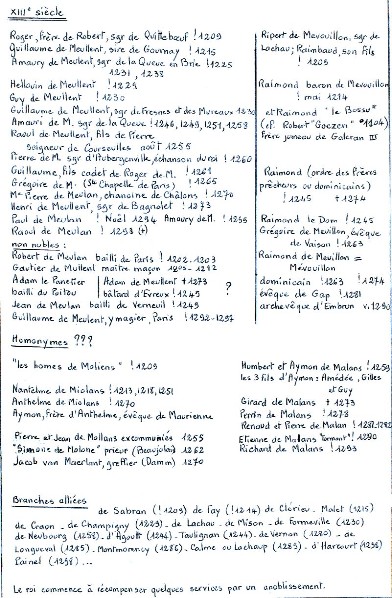 XIIIᵉ siècle
Roger, frère de Robert, sgr de Quillebœuf ! 1209
Guillaume de Meullent, sire de Gournay ! 1215
Amaury de Meullent, sgr de la Queue en Brie ! 1225
1231, 1238
Hellouin de Meullent ! 1229
Guy de Meullent ! 1230
Guillaume de Meullent, sgr de Fresnes et des Mureaux 1230
Amauri de M. sgr de la Queue ! 1246, 1249, 1251, 1259
Raoul de Meullent, fils de Pierre
Seigneur de Courseulles août 1255
Pierre de M. sgr d'Hubergenville, échanson du roi ! 1260
Guillaume, fils cadet de Roger de M. ! 1261
Grégoire de M. (Ste Chapelle de Paris) ! 1265
Mᵉ Pierre de Meulan, chanoine de Châlons ! 1270
Henri de Meullent, sgr de Bagnolet ! 1273
Paul de Meulan ! Noël 1294 Amaury de M. ! 1256
Raoul de Meulan ! 1298 (+)
non nobles :
Robert de Meulan bailli de Paris ! 1202-1203
Gautier de Mullent maître maçon 1205-1212
Adam le Panetier
bailli du Poitou
Adam de Meullent + 1273
bâtard d'Evreux ! 1245
?
Jean de Meulan bailli de Verneuil ! 1245
Guillaume de Meulent, ymagier, Paris ! 1292-1297
Ripert de Mevouillon, sgr de
Lachau; Raimbaud, son fils
! 1205
Raimond baron de Mevouillon
! mai 1214
et Raimond "le Bossu"
(cf. Robert
frère jumeau de Galeran III
Raimond (ordre des frères
prêcheurs ou dominicains)
! 1245 + 1274
Raimond le Dom ! 1245
Grégoire de Mevillon, évêque
de Vaison ! 1263
Raimond de Meuillon =
Mévouillon
dominicain ! 1263 ! 1274
évêque de Gap ! 1281
archevêque d'Embrun v. 1290
Homonymes ???
"les homes de Moliens" ! 1209
Nantelme de Miolans ! 1213, 1218, 1251
Anthelme de Miolans ! 1270
Aymon, frère d'Anthelme, évêque de Maurienne
Pierre et Jean de Mollans excommuniés 1255
"Simone de Molone" prieur (Beaujolais) 1262
Jacob van Maerlant, greffier (Damm) 1270
Humbert et Aymon de Malans ! 1259
les 3 fils d'Aymon : Amédée, Gilles
et Guy
Girard de Malans + 1273
Perrin de Malans ! 1278
Renaud et Pierre de Malan ! 1281-1292
Etienne de Malans ! 1290
Richard de Malans ! 1293
Branches alliées
de Sabran (! 1209) de Fay (! 1214) de Clérieu - Malet (1215)
de Craon - de Champigny (1229) - de Lachau - de Mison - de Formeville (1230)
de Neubourg (1258) - d'Agoult (1246) - Taulignan (1244) - de Vernon (1280) - de
Longueval (1285) - Montmorency (1286) - Calme ou Lachaup (1289) - d'Harcourt (1296)
Painel (1298) ...
Le roi commence à récompenser quelques services par un anoblissement.